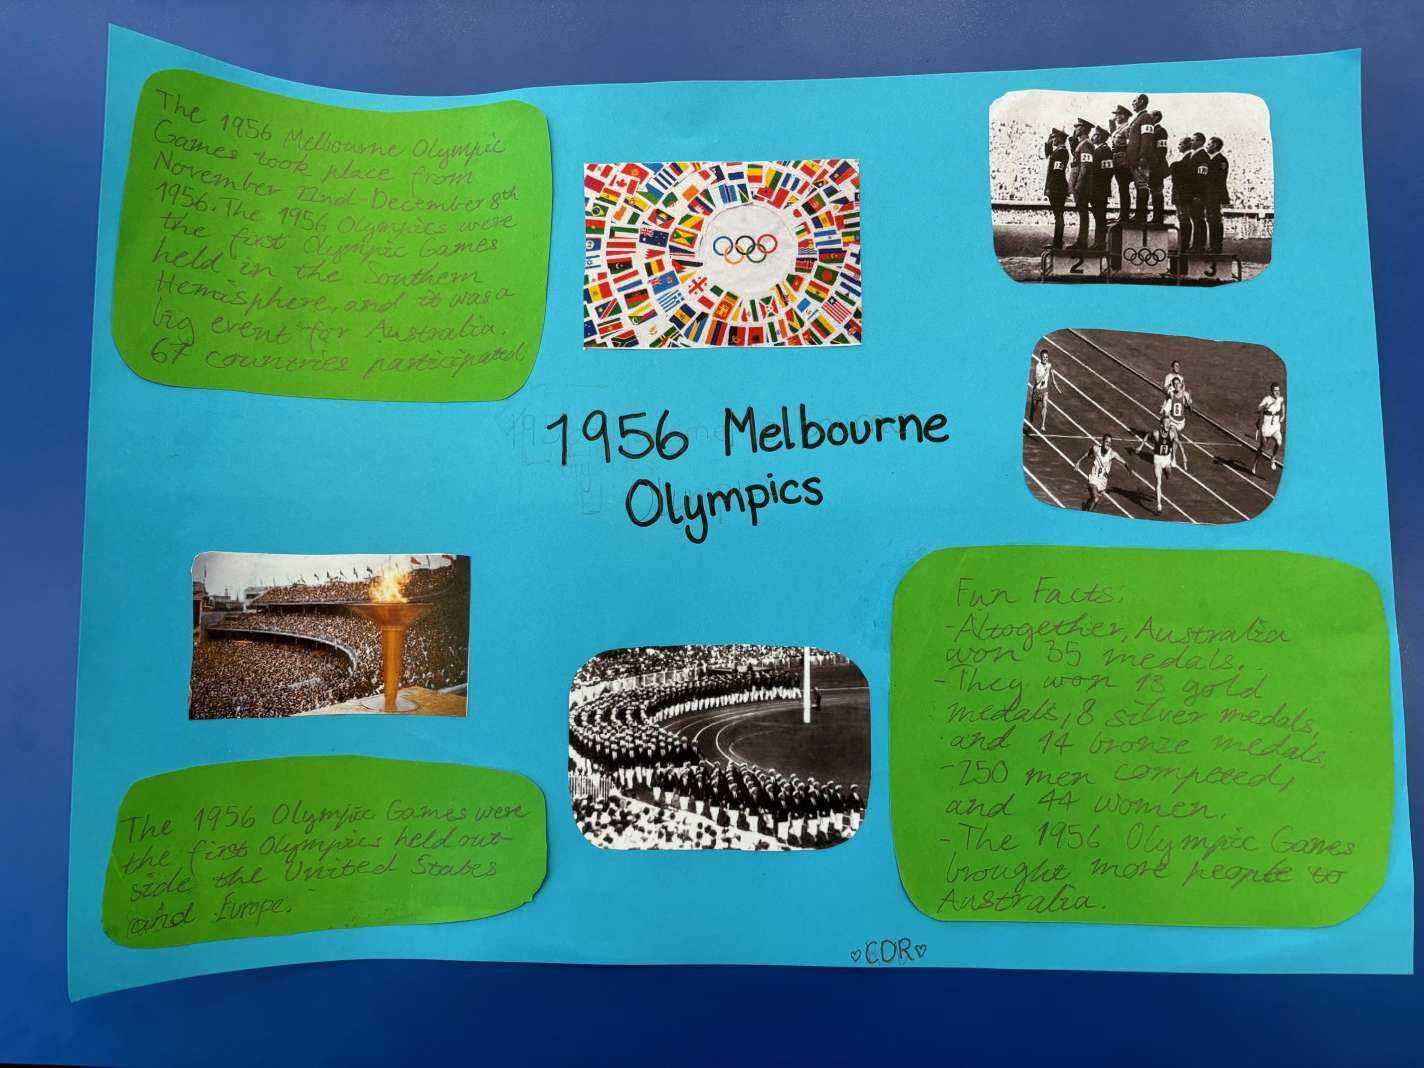 The 1956 Melbourne Olympic
Games took place from
November 22nd-December 8th
1956. The 1956 Olympics were
the first Olympic Games
held in the southern
Hemisphere, and it was a
big event for Australia.
67 countries participated.
1956 Melbourne
Olympics
2
1
3
The 1956 Olympic Games were
the first Olympics held out-
side the United States
and Europe.
Fun Facts:
-Altogether, Australia
won 35 medals.
-They won 13 gold
medals, 8 silver medals,
and 14 bronze medals,
-250 men competed,
and 44 women.
-The 1956 Olympic Games
brought more people to
Australia.
♡CDR♡